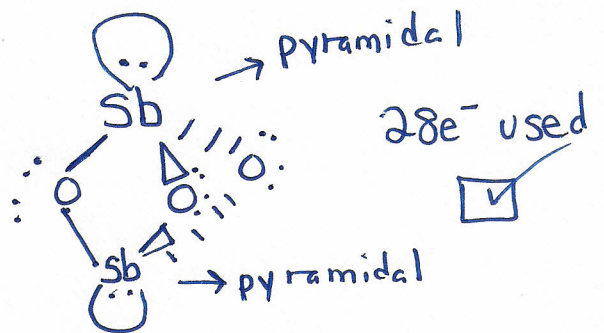 → pyramidal
Sb
28e⁻ used
O
O
O
Sb
→ pyramidal